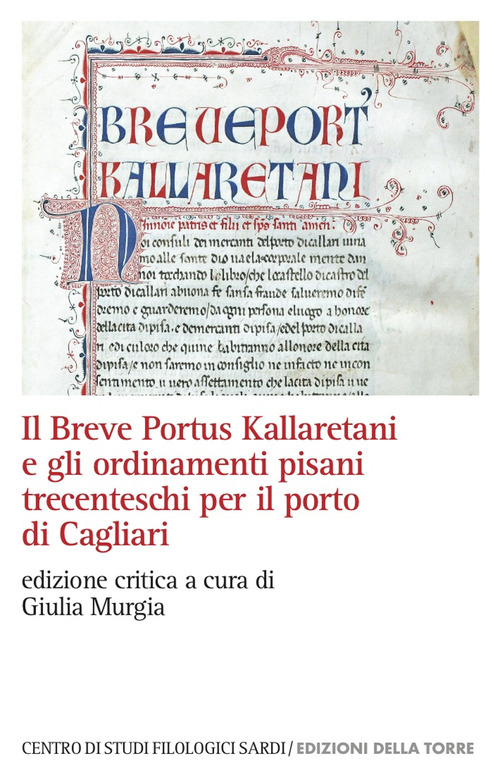 BREVEPORT'
KALLARETANI
Nnomine patris et filii et sp̄s santi amen:
Noi consuli dei mercanti del porto di callari iura
mo alle sante dio va el a corporale mente man
noi tocchando lo libro / che lo castello di castro del
porto di callari a buona fe sansa fraude salueremo dife
deremo e guarderemo / da ogni persona e luogo a honore
della cita di pisa. e de mercanti di pisa / e del porto di calla
ri. e di culoro che quine habitranno al lonore della cita
di pisa / e non saremo in consiglio ne in facto ne in con
sentimento. u uero assettamento che la cita di pisa u ue
Il Breve Portus Kallaretani
e gli ordinamenti pisani
trecenteschi per il porto
di Cagliari
edizione critica a cura di
Giulia Murgia
CENTRO DI STUDI FILOLOGICI SARDI / EDIZIONI DELLA TORRE